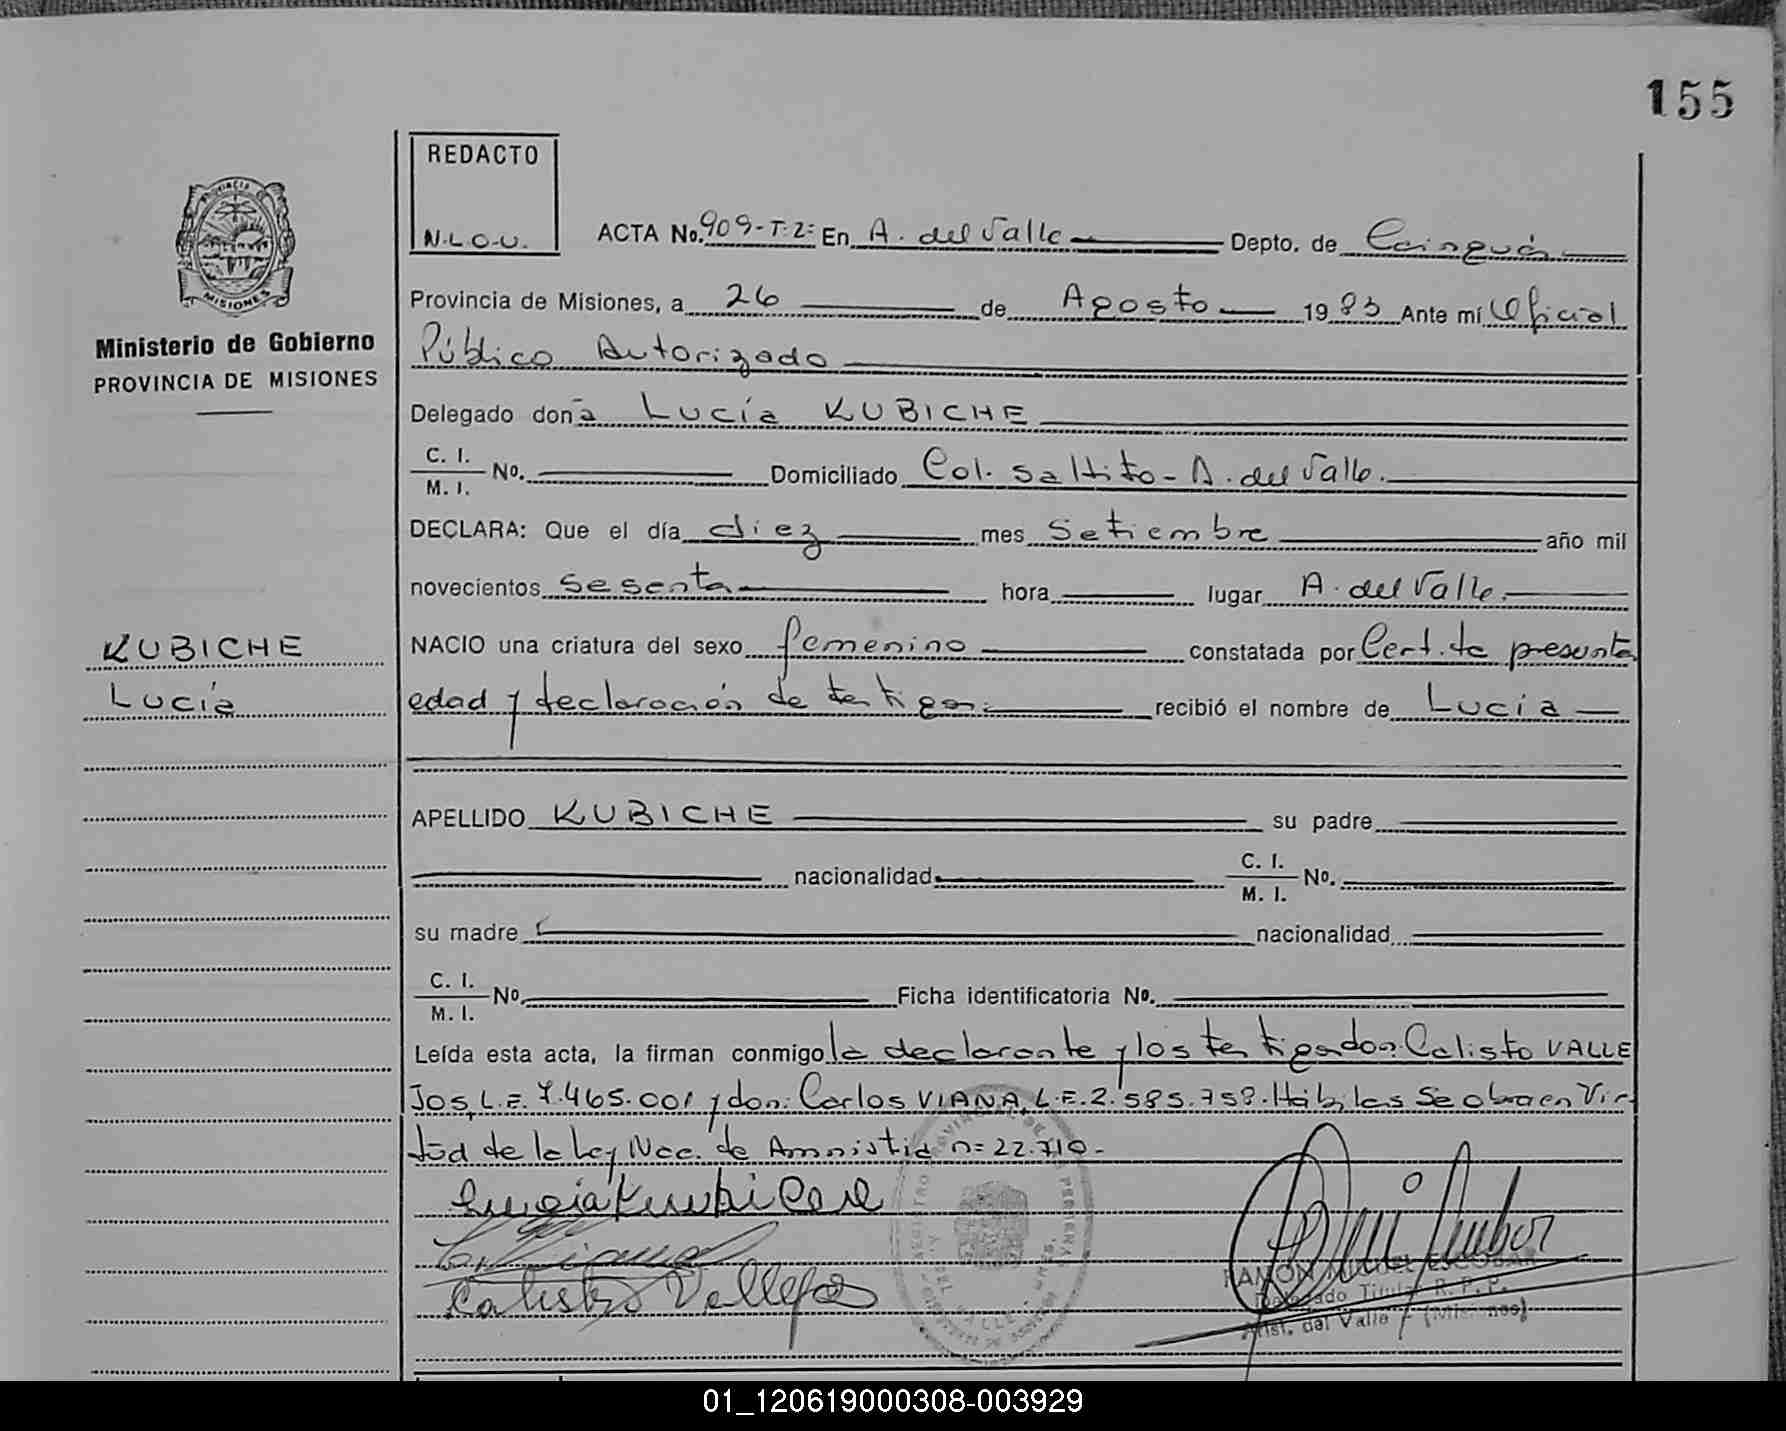 155
REDACTO
N.L.O.U.
PROVINCIA DE
MISIONES
Ministerio de Gobierno
PROVINCIA DE MISIONES
KUBICHE
Lucía
ACTA No. 909-T:2: En A. del Valle Depto. de Cainguás
Provincia de Misiones, a 26 de Agosto 1983 Ante mí Oficial
Público Autorizado
Delegado doña Lucía KUBICHE
C. I.
M. I. No. Domiciliado Col. Saltito - A. del Valle.
DECLARA: Que el día diez mes Setiembre año mil
novecientos sesenta hora lugar A. del Valle.
NACIO una criatura del sexo femenino constatada por Cert. de presunta
edad y declaración de testigos. recibió el nombre de Lucía
APELLIDO KUBICHE su padre
nacionalidad C. I.
M. I. No.
su madre nacionalidad
C. I.
M. I. No. Ficha identificatoria No.
Leída esta acta, la firman conmigo la declarante y los testigos don: Calisto VALLE
JOS, L.E. 7.465.001 y don: Carlos VIANA, L.E. 2.585.758. Hábiles Se obra en Vir
tud de la Ley Nac. de Amnistía n= 22.710.-
Calisto Vallejos
RAMON MIGUEL ESCOBAR
Delegado Titular R. P. P.
Arist. del Valle (Misiones)
01_120619000308-003929